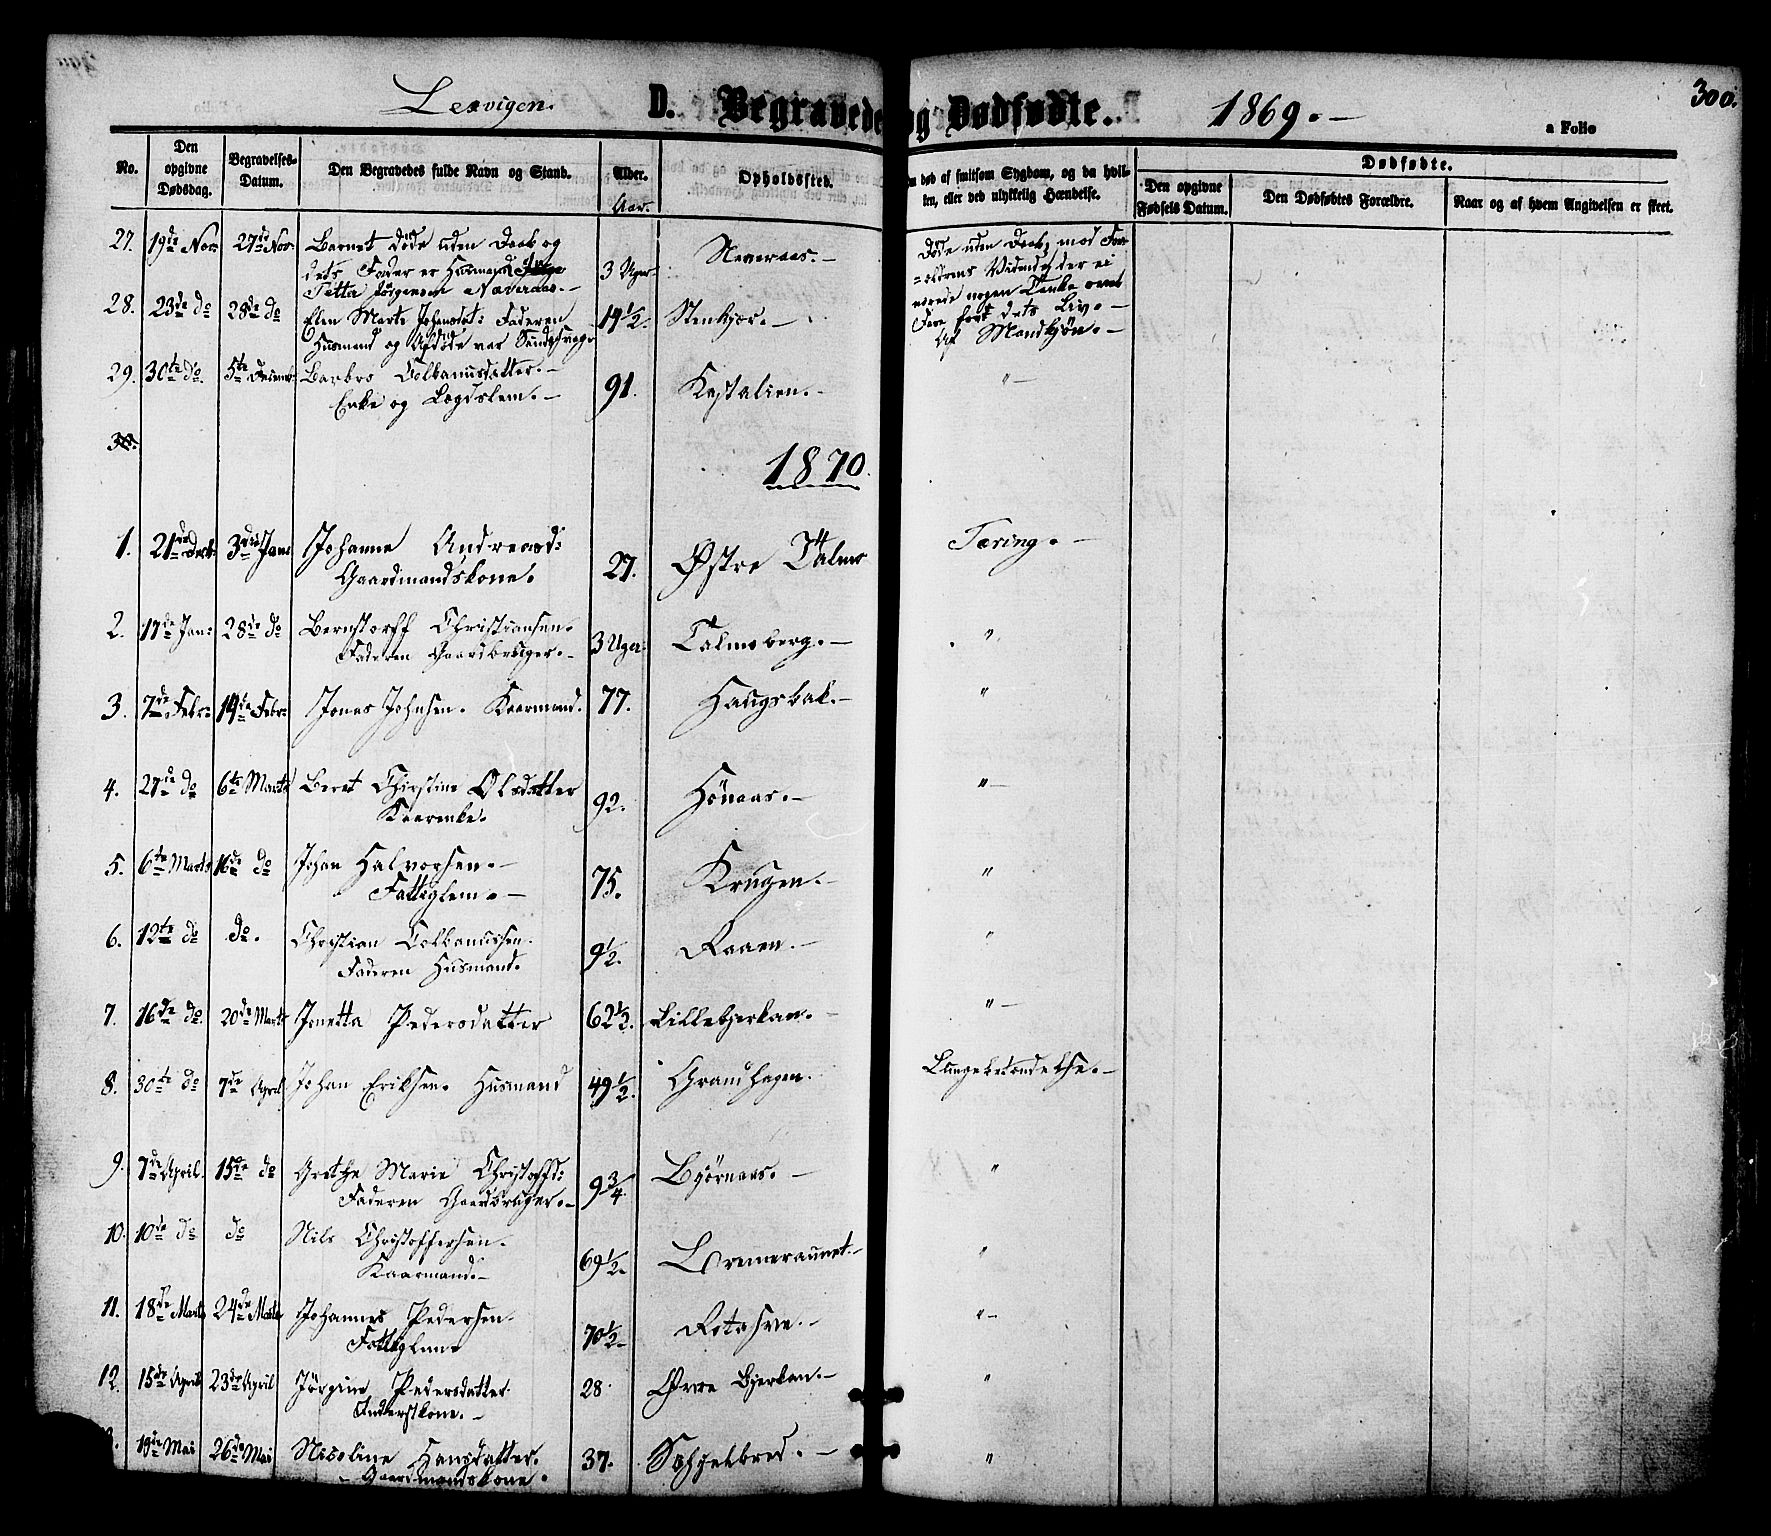 Lexvigen. D. Begravede og Dødfødte. 1869. 300.
a Folio
No. Den opgivne Dødsdag. Begravelses-Datum. Den Begravedes fulde Navn og Stand. Alder. Opholdssted. død af smitsom Sygdom, og da hvilken, eller ved ulykkelig Hændelse. Dødfødte.
Aar.
Den opgivne Fødsels Datum. Den Dødfødtes Forældre. Naar og af hvem Angivelsen er skeet.
27. 19de Nov: 27de Nov: Barnet døde uden Daab og
dets Fader er Husmand
Jørgensen 3 Uger Neveraas.
Døde uden Daab, med For-
=ældrens Vidende, der ei
nærede nogen Tanke om at
Fare for dets Liv.
28. 23de do 28de do Elen Marte Johansdat: Faderen
Husmand og Afdøde var 19½. Stenkjær. Af
29. 30te do. 5te Decemb: Barbro Colbanusdatter.
Enke og Lægdslem. 91. Kastalien. "
30.
1870.
1. 21de Decb: 3die Jan: Johanne Andreasd:
Gaardmandskone. 27. Østre Talmo Tæring.
2. 17de Jan: 28de do Bernstorff Christiansen.
Faderen Gaardbruger. 3 Uger. Talmoberg. "
3. 7de Febr: 19de Febr: Jonas Johnsen. Kaarmand. 77. Haugsbak. "
4. 27de do 6te Marts Beret Christine Olsdatter
Kaarenke. 92. Hønaas. "
5. 6te Marts 16de do Johan Halvorsen.
Fattiglem. 75. Krugen. "
6. 12te do do. Christian Colbanussen.
Faderen Husmand. 9½. Raaen. "
7. 16de do. 20de Marts Jonetta Pedersdatter 62½. Lillebjerkan. "
8. 30te do 7de April Johan Eriksen. Husmand 49½. Grandhagen. Lungebetændelse.
9. 7de April. 15de do Grethe Marie Christoffd:
Faderen Gaardbruger. 9¾. Bjørnaas. "
10. 10de do do Nils Christoffersen.
Kaarmand. 69½. "
11. 18de Marts 24de Marts Johannes Pedersen.
Fattiglem. 70½. Rotahve. "
12. 15de April 23de April Jørgine Pedersdatter.
Inderstkone. 28. Øvre Bjerkan. "
19de Mai 26de Mai Nicoline Hansdatter.
Gaardmandskone. 37. Schjelbred. "